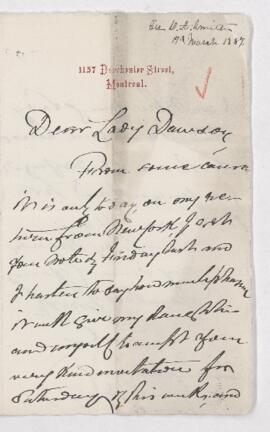 Sir D. A. Smith
17th March 1887.
1157 Dorchester Street,
Montreal.
Dear Lady Dawson,
From some cause
it is only today on my re-
turn from New York I got
your note of Sunday last and
I hasten to say how much pleasure
it will give my daughter
and myself to accept your
very kind invitation for
Saturday of this week, and